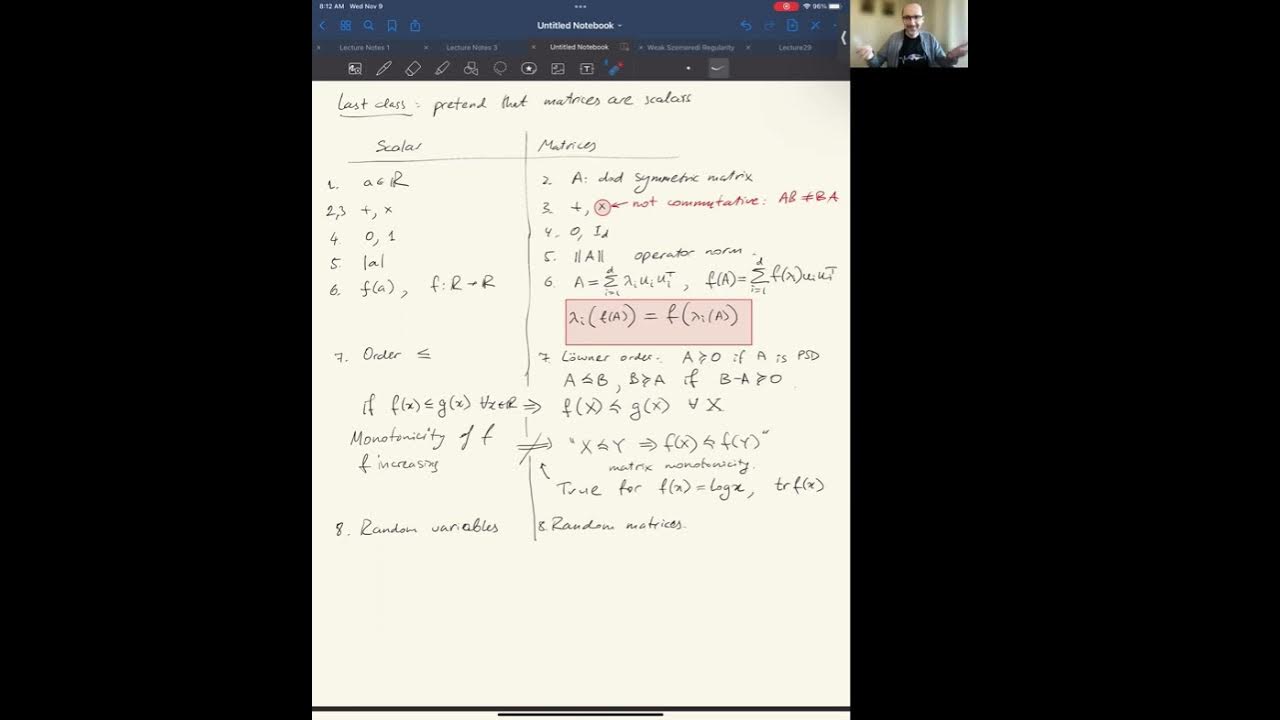 8:12 AM Wed Nov 9
96%
Untitled Notebook
Lecture Notes 1
Lecture Notes 3
Untitled Notebook
Weak Szemeredi Regularity
Lecture29
Last class: pretend that matrices are scalars
Scalar
Matrices
1. a∈ℝ
2. A: d×d symmetric matrix
2,3 +, ×
3. +, × ← not commutative: AB ≠ BA
4. 0, 1
4. 0, I_d
5. |a|
5. ||A|| operator norm.
6. f(a), f: ℝ → ℝ
6. A = Σ_{i=1}^d λ_i u_i u_i^T, f(A) = Σ_{i=1}^d f(λ_i) u_i u_i^T
λ_i(f(A)) = f(λ_i(A))
7. Order ≤
7. Löwner order: A ≽ 0 if A is PSD
A ≼ B, B ≽ A if B-A ≽ 0.
if f(x) ≤ g(x) ∀x∈ℝ ⇒ f(X) ≼ g(X) ∀ X
Monotonicity of f
f increasing
⇏ "X ≼ Y ⇒ f(X) ≼ f(Y)"
matrix monotonicity.
True for f(x) = log x, tr f(x)
8. Random variables
8. Random matrices.